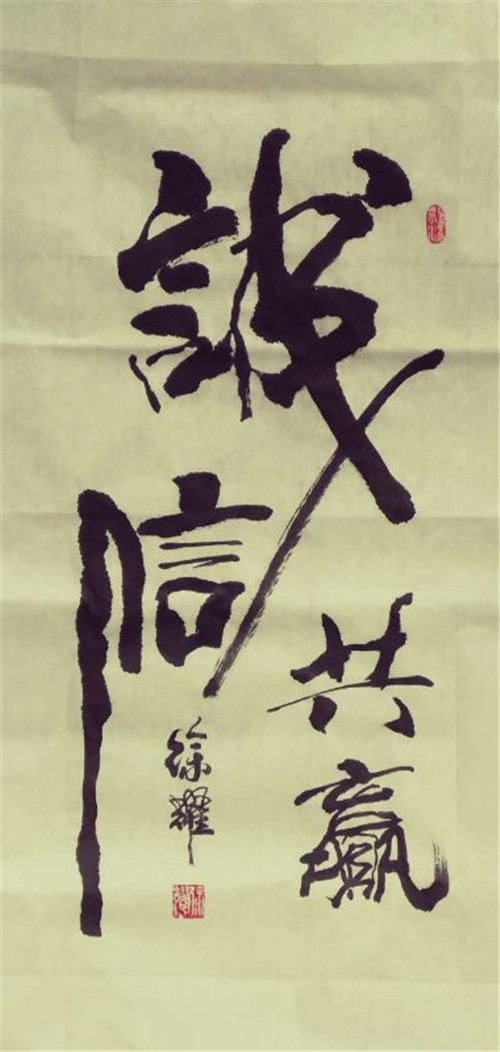 誠信
共贏
徐耀